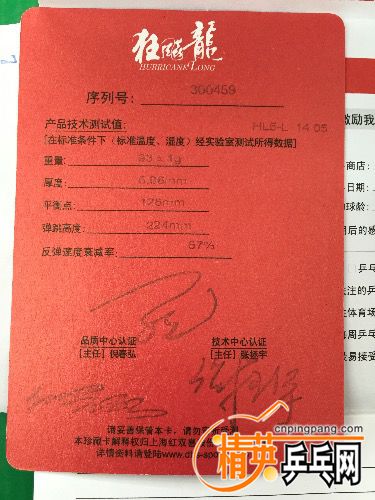 狂飚龍
HURRICANE LONG
序列号： 300459
产品技术测试值： HL5-L 14 05
[在标准条件下（标准温度、湿度）经实验室测试所得数据]
重量： 93 ± 1g
厚度： 5.96mm
平衡点： 175mm
弹跳高度： 224mm
反弹速度衰减率： 57%
品质中心认证 技术中心认证
[主任] 倪春弘 [主任] 张扬宇
请妥善保管本卡，请勿
本珍藏卡解释权归上海红双喜
详情资料请登陆www.dhs-spo
激励我
商店：
日期：
球龄：
用后的感
乒乓
注的乒
体育场
周乒乓
易接受
cnpingpang.com
精英乒乓网